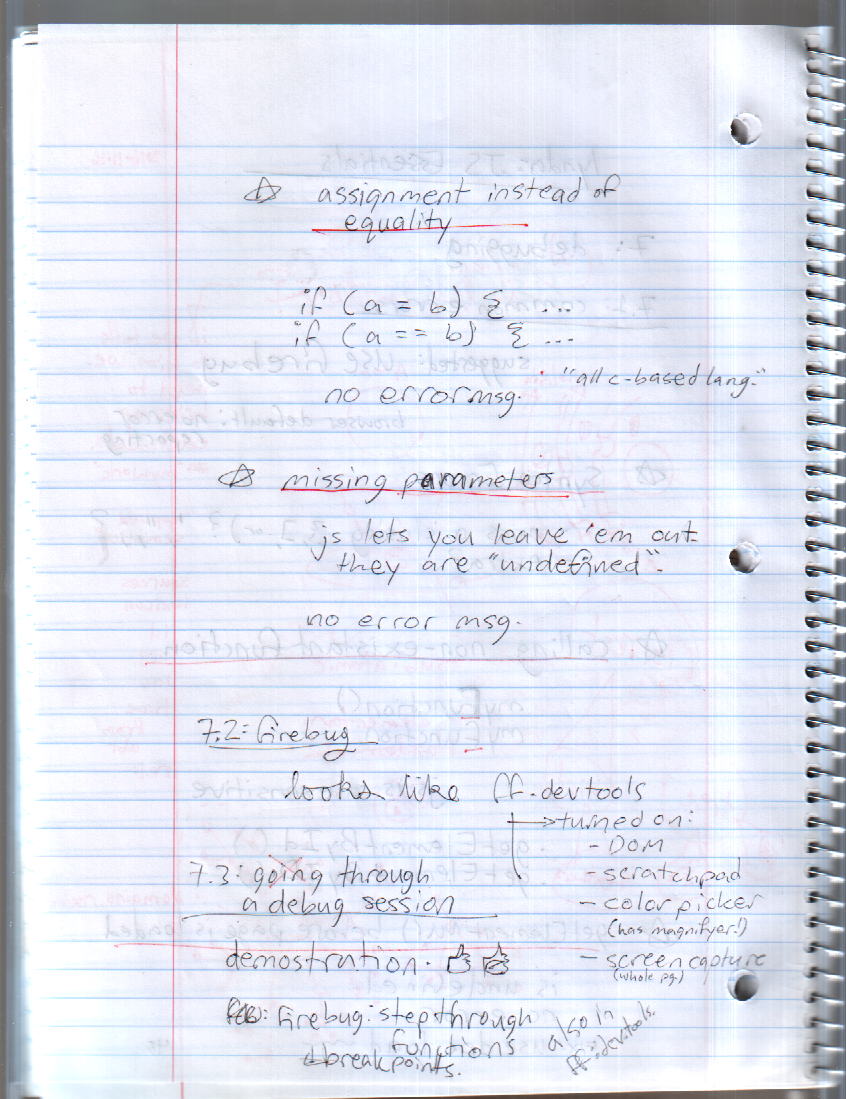 ☆ assignment instead of
equality
if (a = b) { ...
if (a == b) { ...
"all c-based lang."
no error msg.
☆ missing parameters
js lets you leave 'em out
they are "undefined".
no error msg.
7.2: firebug
looks like ff.devtools
→ turned on:
- DOM
- scratchpad
- color picker
(has magnifyer!)
- screen capture
(whole pg.)
7.3: going through
a debug session
demostration.
firebug: step through
functions
+breakpoints.
also in
ff:devtools.